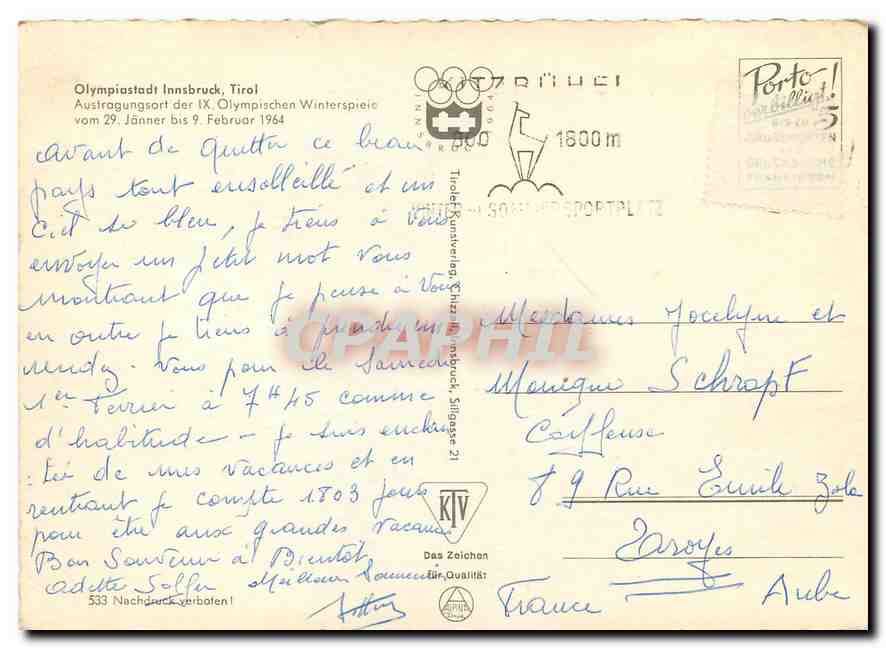 Olympiastadt Innsbruck, Tirol
Austragungsort der IX. Olympischen Winterspiele
vom 29. Jänner bis 9. Februar 1964
avant de quitter ce beau
pays tout ensolleillé et un
ciel si bleu, je tiens à vous
envoyer un petit mot vous
montrant que je pense à Vous
en outre je tiens à prendre un
rendez-vous pour le samedi
1er Fevrier à 7H45 comme
d'habitude - je suis enchan
tée de mes vacances et en
rentrant je compte 1803 jours
pour être aux grandes vacances
Bon Souvenir à Bientôt
Odette Meilleur Souvenir
533 Nachdruck verboten!
INNSBRUCK 1964
KITZBÜHEL
800 1800 m
WINTER- SOMMERSPORTPLATZ
Porto
verbilligt!
5
Tiroler Kunstverlag, Chizzali, Innsbruck, Sillgasse 21
KTV
Das Zeichen
für Qualität
ALPINA
Mesdames Jocelyne et
Monique Schrapf
Coiffeuse
89 Rue Emile Zola
Troyes
France Aube
CPAPHIL